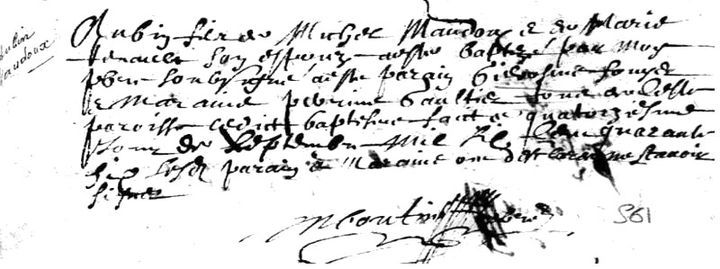 Aubin
Naudoux
Aubin fils de Michel Naudoux & de Marie
Renault son espouze a esté baptizé par moy
pbre soubsigné a esté parain
& Maraine perrine Gaultier tous de ceste
paroisse ledict baptesme faict ce quatorziesme
Jour de septembre Mil six Cens quarante
six lesdz parain & Maraine ont declaré ne scavoir
signer
pbre
561